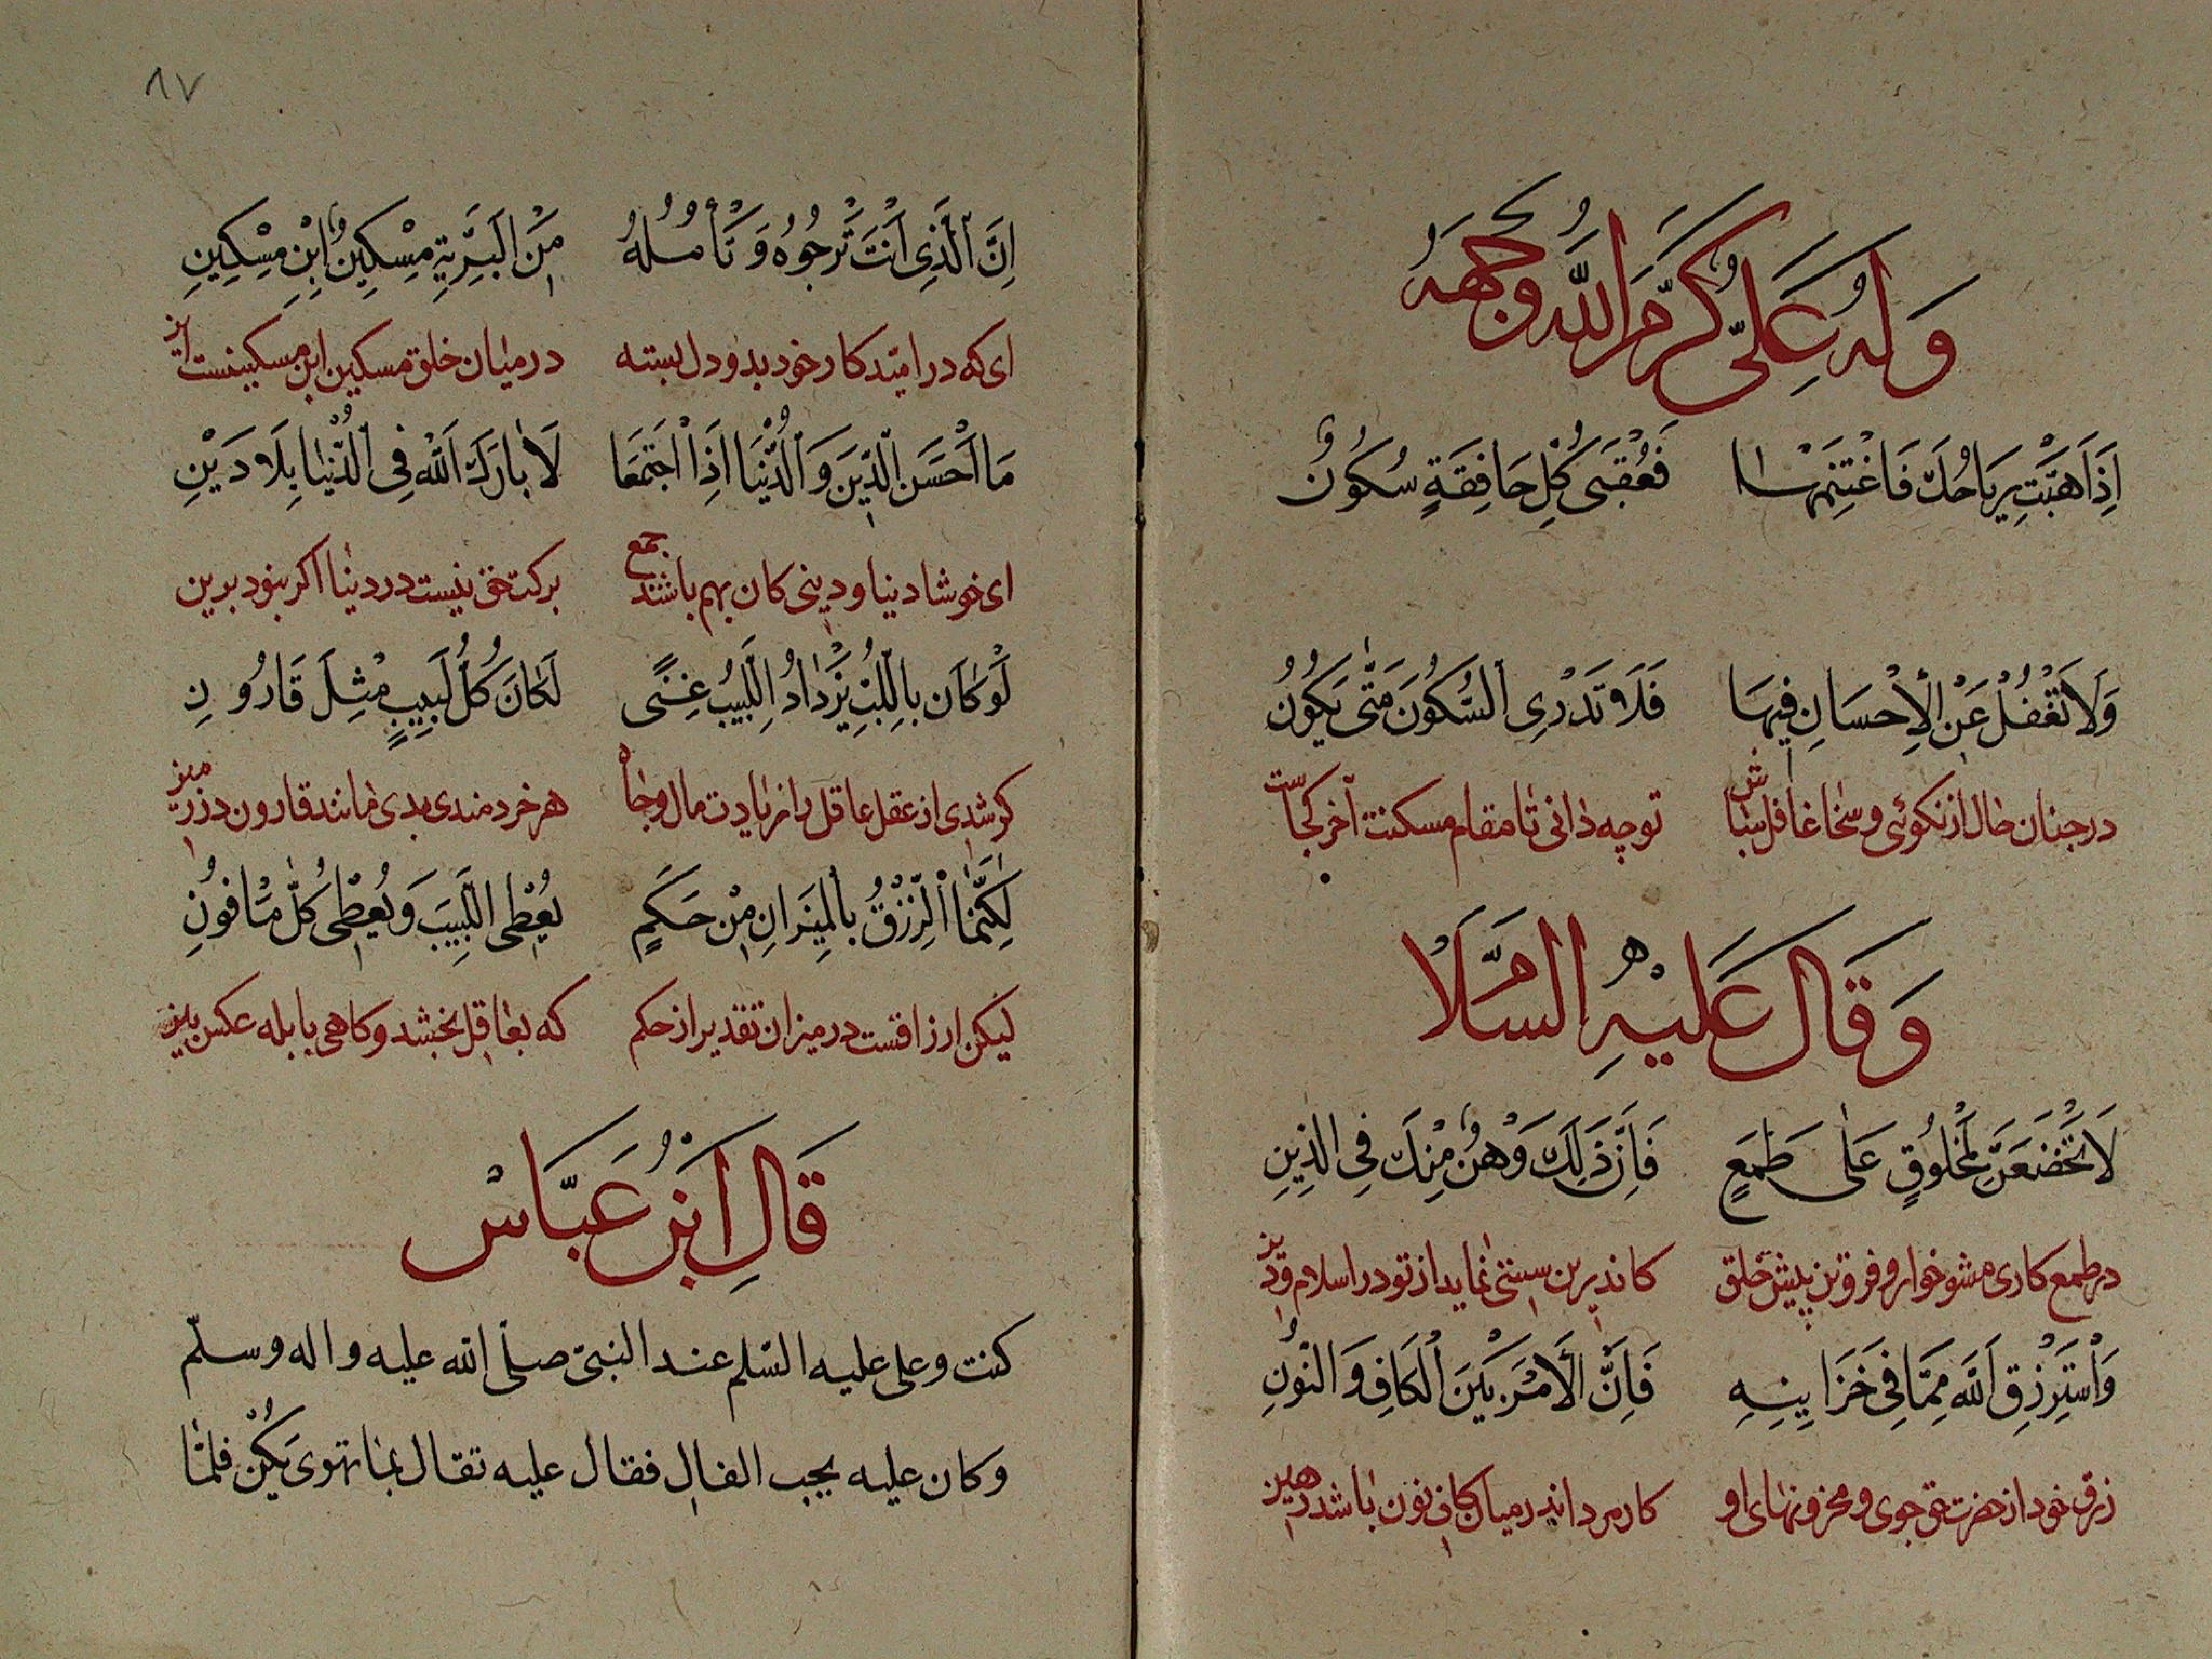 وَلَهُ عَلِيٌّ كَرَّمَ اللّٰهُ وَجْهَهُ
اِذَا هَبَّتْ رِيَاحُكَ فَاغْتَنِمْهَا فَعُقْبَى كُلِّ خَافِقَةٍ سُكُونٌ
وَلَا تَغْفُلْ عَنِ الْاِحْسَانِ فِيهَا فَلَا تَدْرِى السُّكُونَ مَتٰى يَكُونُ
در چنان حال از نکوئی و سخا غافل مباش تو چه دانی تا مقام مسکنت آخر کجاست
وَقَالَ عَلَيْهِ السَّلَام
لَا تَخْضَعَنَّ لِمَخْلُوقٍ عَلٰى طَمَعٍ فَاِنَّ ذٰلِكَ وَهْنٌ مِنْكَ فِى الدِّينِ
در طمع کاری مشو خوار و فروتن پیش خلق کاندرین سستی نماید از تو در اسلام و دین
وَاسْتَرْزِقِ اللّٰهَ مِمَّا فِى خَزَايِنِهِ فَاِنَّ الْاَمْرَ بَيْنَ الْكَافِ وَالنُّونِ
رزق خود از حضرت حق جوی و مخزونهای او کار مردا در میان کاف نون باشد رهین
٨٧
اِنَّ الَّذِى اَنْتَ تَرْجُوهُ وَتَأْمُلُهُ مِنَ الْبَرِيَّةِ مِسْكِينٌ ابْنُ مِسْكِينِ
ای که در امید کار خود بدو دل بسته در میان خلق مسکین ابن مسکینست این
مَا اَحْسَنَ الدِّينَ وَالدُّنْيَا اِذَا اجْتَمَعَا لَا بَارَكَ اللّٰهُ فِى الدُّنْيَا بِلَا دِيْنِ
ای خوشا دنیا و دینی کان بهم باشند جمع برکت حق نیست در دنیا اگر نبود برین
لَوْ كَانَ بِاللُّبِّ يَزْدَادُ اللَّبِيبُ غِنًى لَكَانَ كُلُّ لَبِيبٍ مِثْلَ قَارُونِ
گر شدی از عقل عاقل را زیادت مال و جاه هر خردمندی بدی مانند قارون در زمین
لٰكِنَّمَا الرِّزْقُ بِالْمِيزَانِ مِنْ حَكَمٍ يُعْطِى اللَّبِيبَ وَيُعْطِى كُلَّ مَافُونِ
لیکن ارزاقست در میزان تقدیر از حکم که بعاقل بخشد و کاهی با بله عکس بین
قَالَ ابْنُ عَبَّاسْ
كنت وعلى عليه السّلم عند النبىّ صلّى اللّه عليه واله وسلّم
وكان عليه يحب الفال فقال عليه تقال بما تهوى يَكُنْ فلمّا